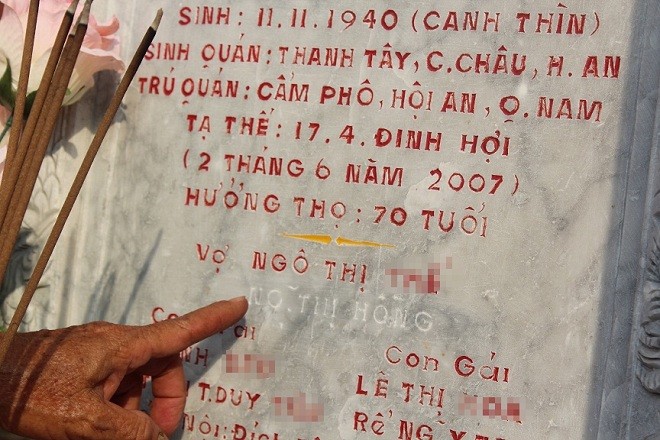 SINH: 11.11.1940 (CANH THÌN)
SINH QUÁN: THANH TÂY, C.CHÂU, H.AN
TRÚ QUÁN: CẨM PHÔ, HỘI AN, Q.NAM
TẠ THẾ: 17.4. ĐINH HỢI
(2 THÁNG 6 NĂM 2007)
HƯỞNG THỌ: 70 TUỔI
VỢ NGÔ THỊ
THỊ HỒNG
Con Gái
LÊ THỊ
T.DUY